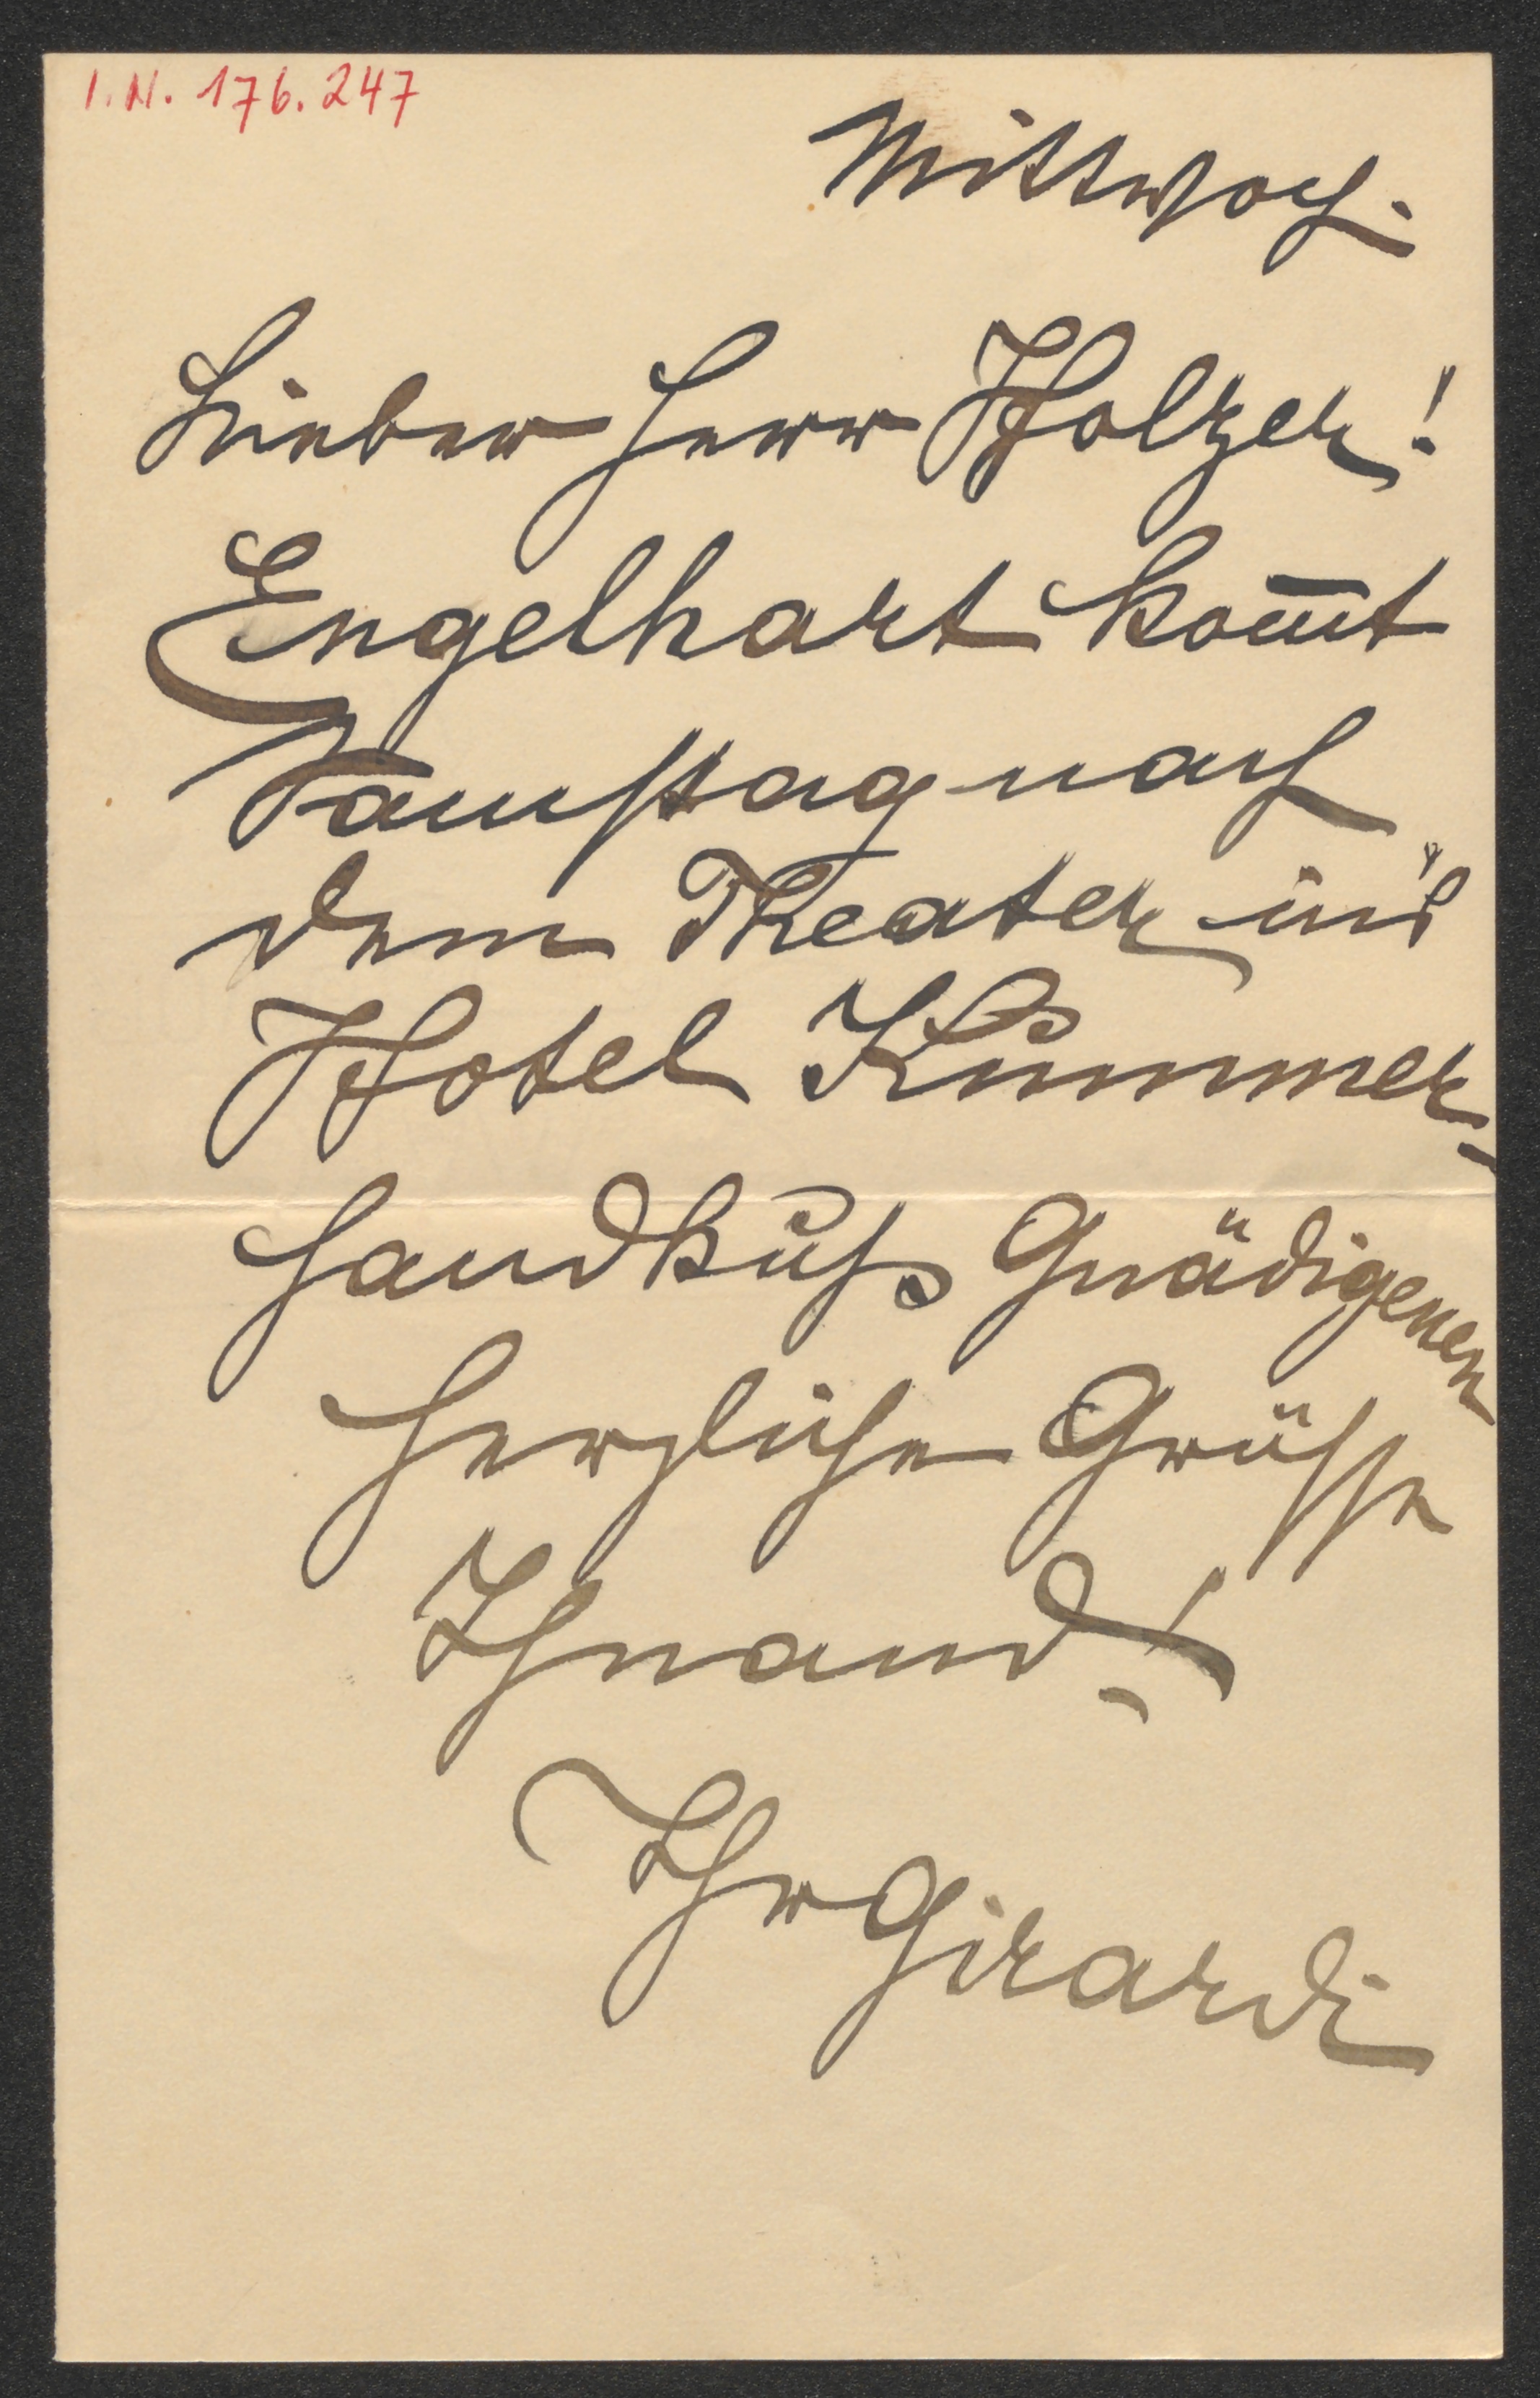 I.N. 176.247
Mittwoch.
Lieber Herr Holzer!
Engelhart kom̅t
Samstag nach
dem Theater in's
Hotel Kummer-
Handkuss Gnädigenen
Herzliche Grüsse
Ihr Girardi